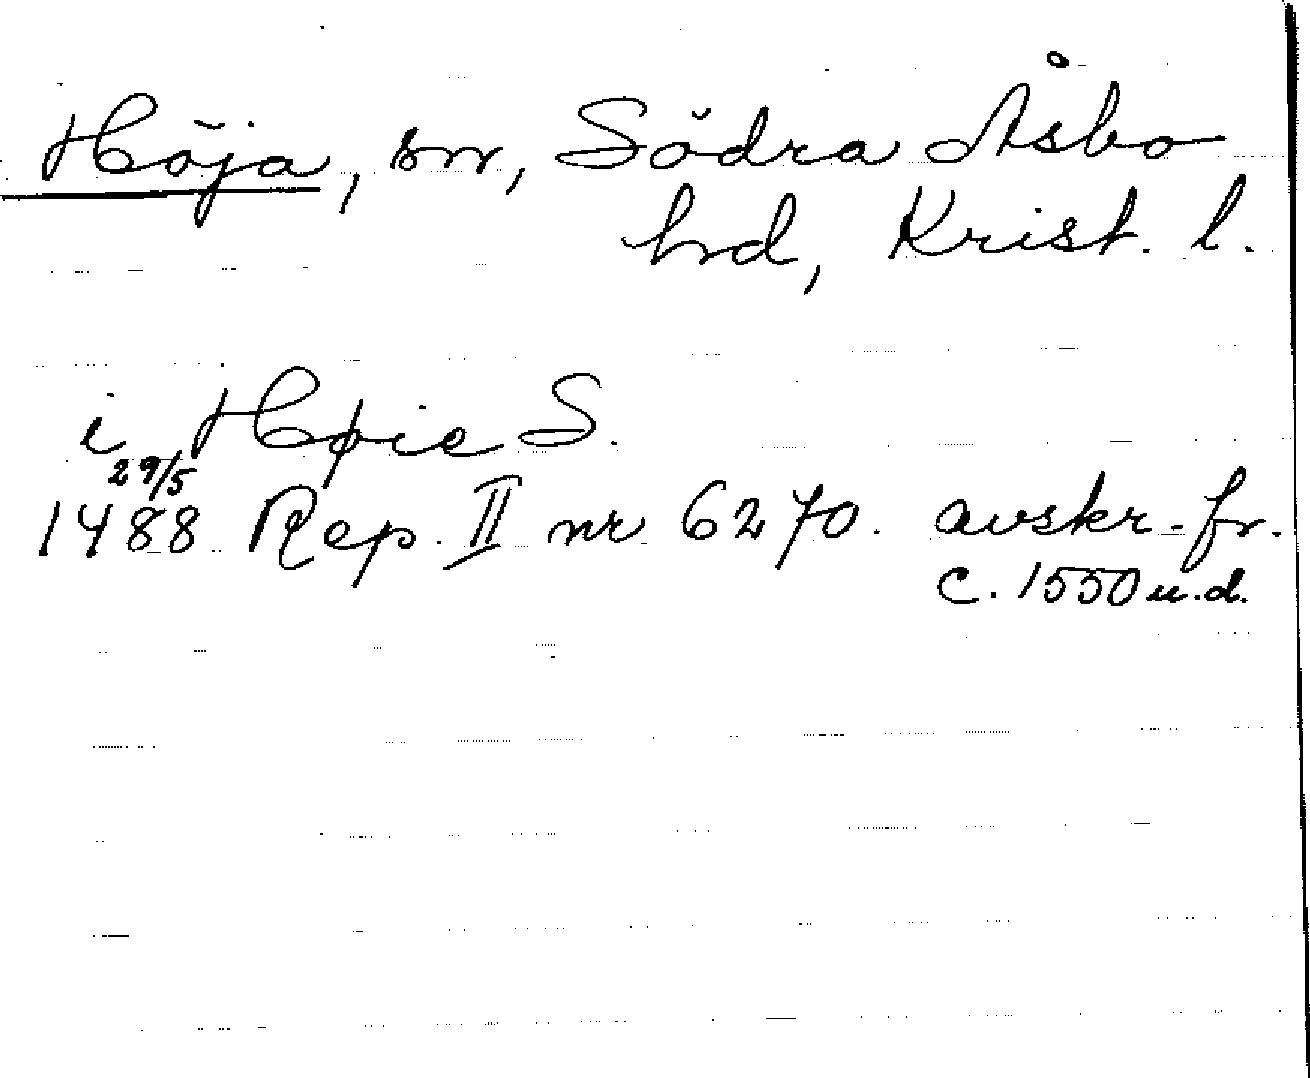 Höja, sn, Södra Åsbo
hd, Krist. l.
i Høie S.
29/5
1488 Rep. II nr 6270. avskr. fr.
c. 1550 u.d.